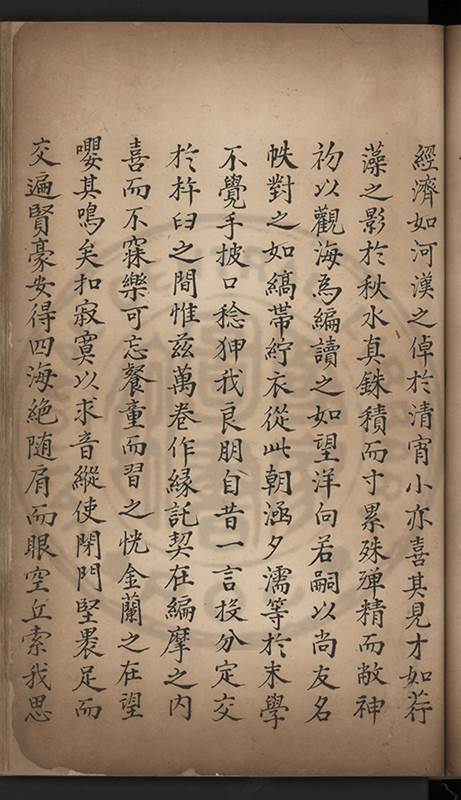 經濟如河漢之倬於清宵小亦喜其見才如荇
藻之影於秋水真銖積而寸累殊殫精而敝神
初以觀海為編讀之如望洋向若嗣以尚友名
帙對之如縞帶紵衣從此朝涵夕濡等於末學
不覺手披口稔狎我良朋自昔一言投分定交
於杵臼之間惟兹萬卷作緣託契在編摩之内
喜而不寐樂可忘餐童而習之恍金蘭之在望
嚶其鳴矣扣寂寞以求音縱使閉門堅裹足而
交遍賢豪安得四海絶随肩而眼空丘索我思